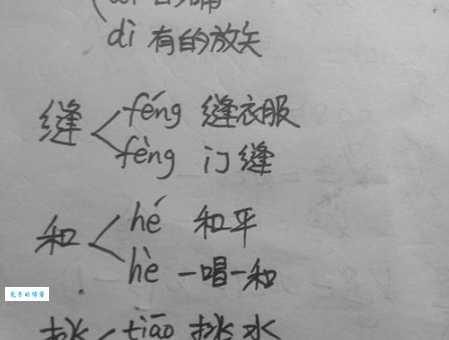 dì 有的放矢
缝 féng 缝衣服
fèng 门缝
和 hé 和平
hè 一唱一和
挑 tiāo 挑水